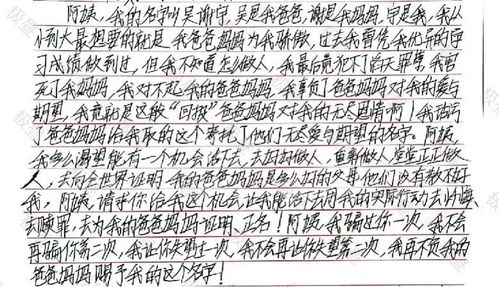 阿姨，我的名字叫吴谢宇，吴是我爸爸，谢是我妈妈，宇是我，我从
小到大最想要的就是我爸爸妈妈为我骄傲，过去我曾凭我优异的学
习成绩做到过，但我不知道怎么做人，我最后竟犯下滔天罪孽，我害
死了我妈妈，我对不起我的爸爸妈妈，我辜负了爸爸妈妈对我的爱与
期望，我竟就是这般“回报”爸爸妈妈对我的无尽恩情啊！我玷污
了爸爸妈妈给我取的这个寄托了他们无尽爱与期望的名字。阿姨，
我多么渴望能有一个机会活下去，去好好做人，重新做人堂堂正正做
人，去向全世界证明，我的爸爸妈妈是多么好的父母，他们没有教不好
我，阿姨，请求你给我这个机会，让我能活下去用我的实际行动去忏悔
去赎罪，去为我的爸爸妈妈证明、正名！阿姨我骗过你一次，我不会
再骗你第二次，我让你失望过一次，我不会再让你失望第二次，我再不负我的
爸爸妈妈赐予我的这个名字！